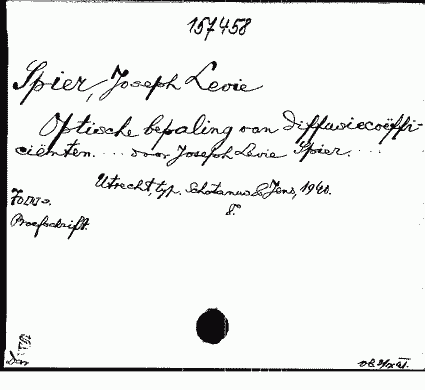 157458
Spier, Joseph Levie
Optische bepaling van diffusiecoëffi-
ciënten. .... door Joseph Levie Spier. ...
Utrecht, typ. Schotanus & Jens, 1940.
8°.
Proefschrift.